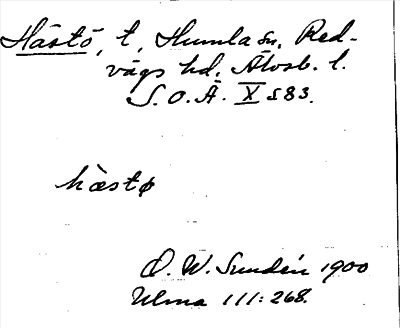 Hästö, t, Humla sn, Red-
vägs hd. Älvsb. l.
S. O. Ä. X s 83.
hæstø
D. W. Sundén 1900
Ulma 111:268.